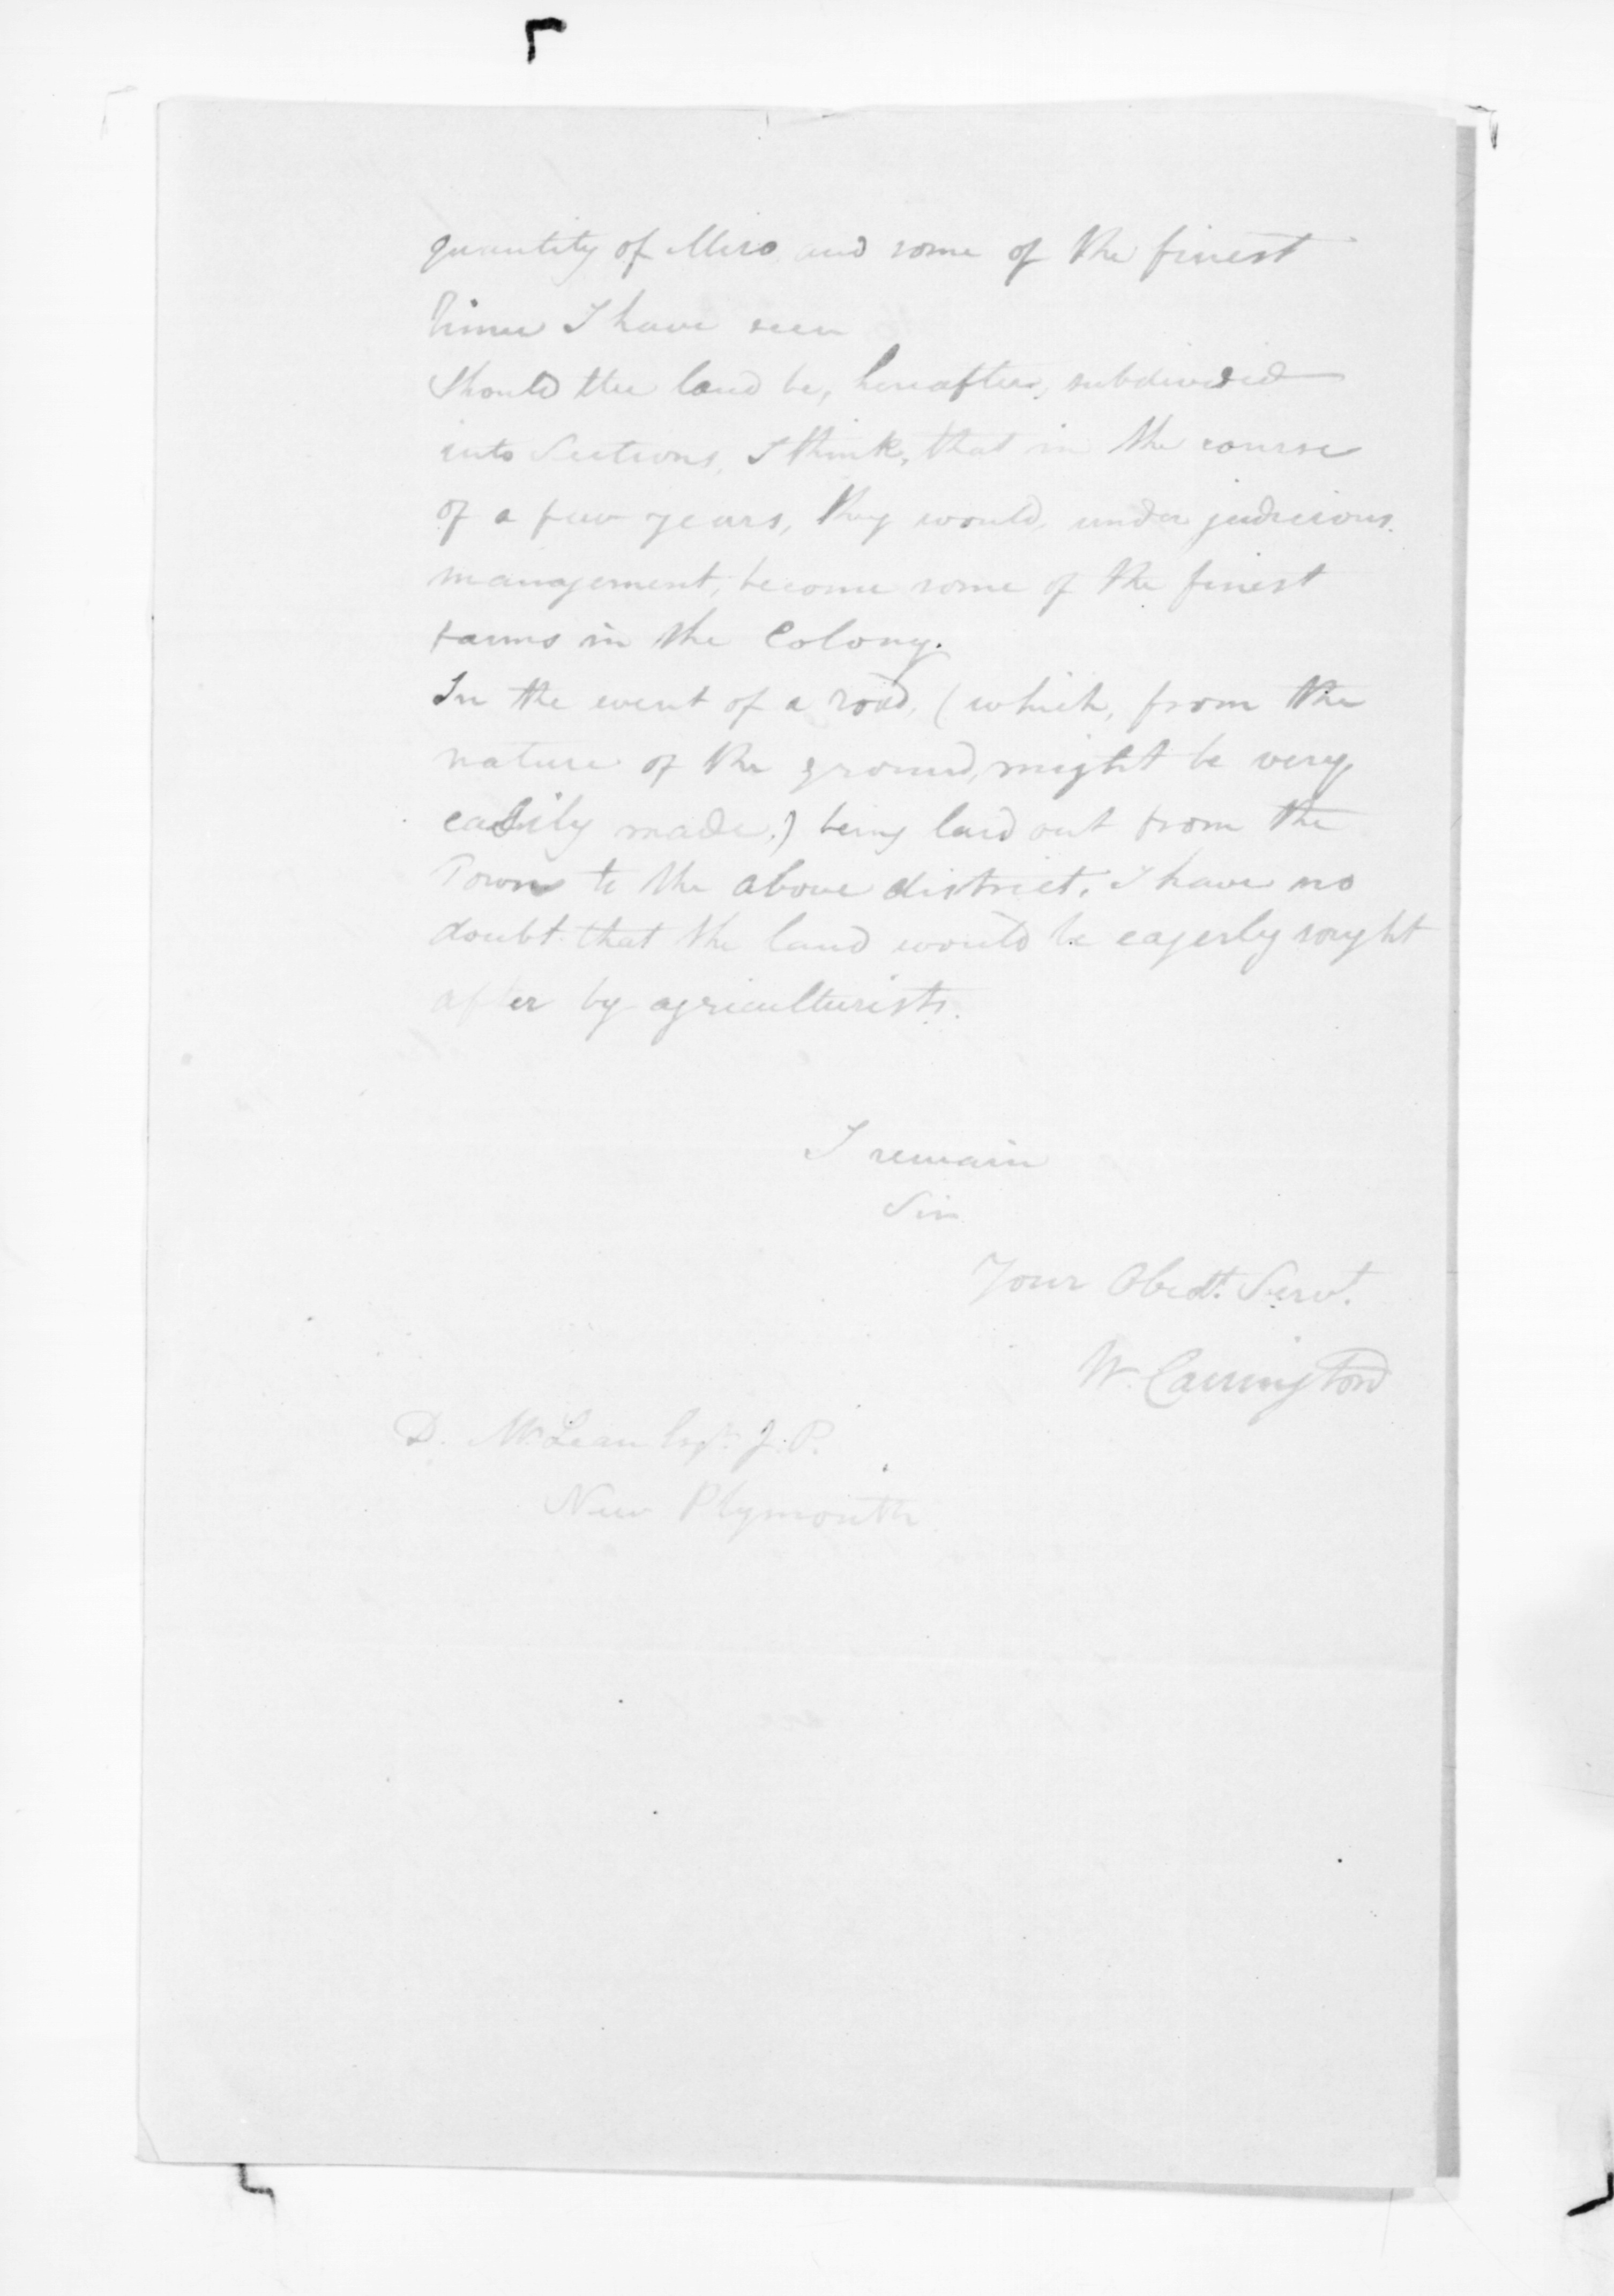 quantity of Miro and some of the finest
Rimu I have seen
Should the land be, hereafter, subdivided
into Sections, I think, that in the course
of a few years, they would, under judicious
management, become some of the finest
farms in the Colony.
In the event of a road, (which, from the
nature of the ground, might be very
easily made,) being laid out from the
Town to the above district, I have no
doubt that the land would be eagerly sought
after by agriculturists.
I remain
Sir
Your Obedt. Servt.
W. Carrington
D. McLean Esqr. J. P.
New Plymouth